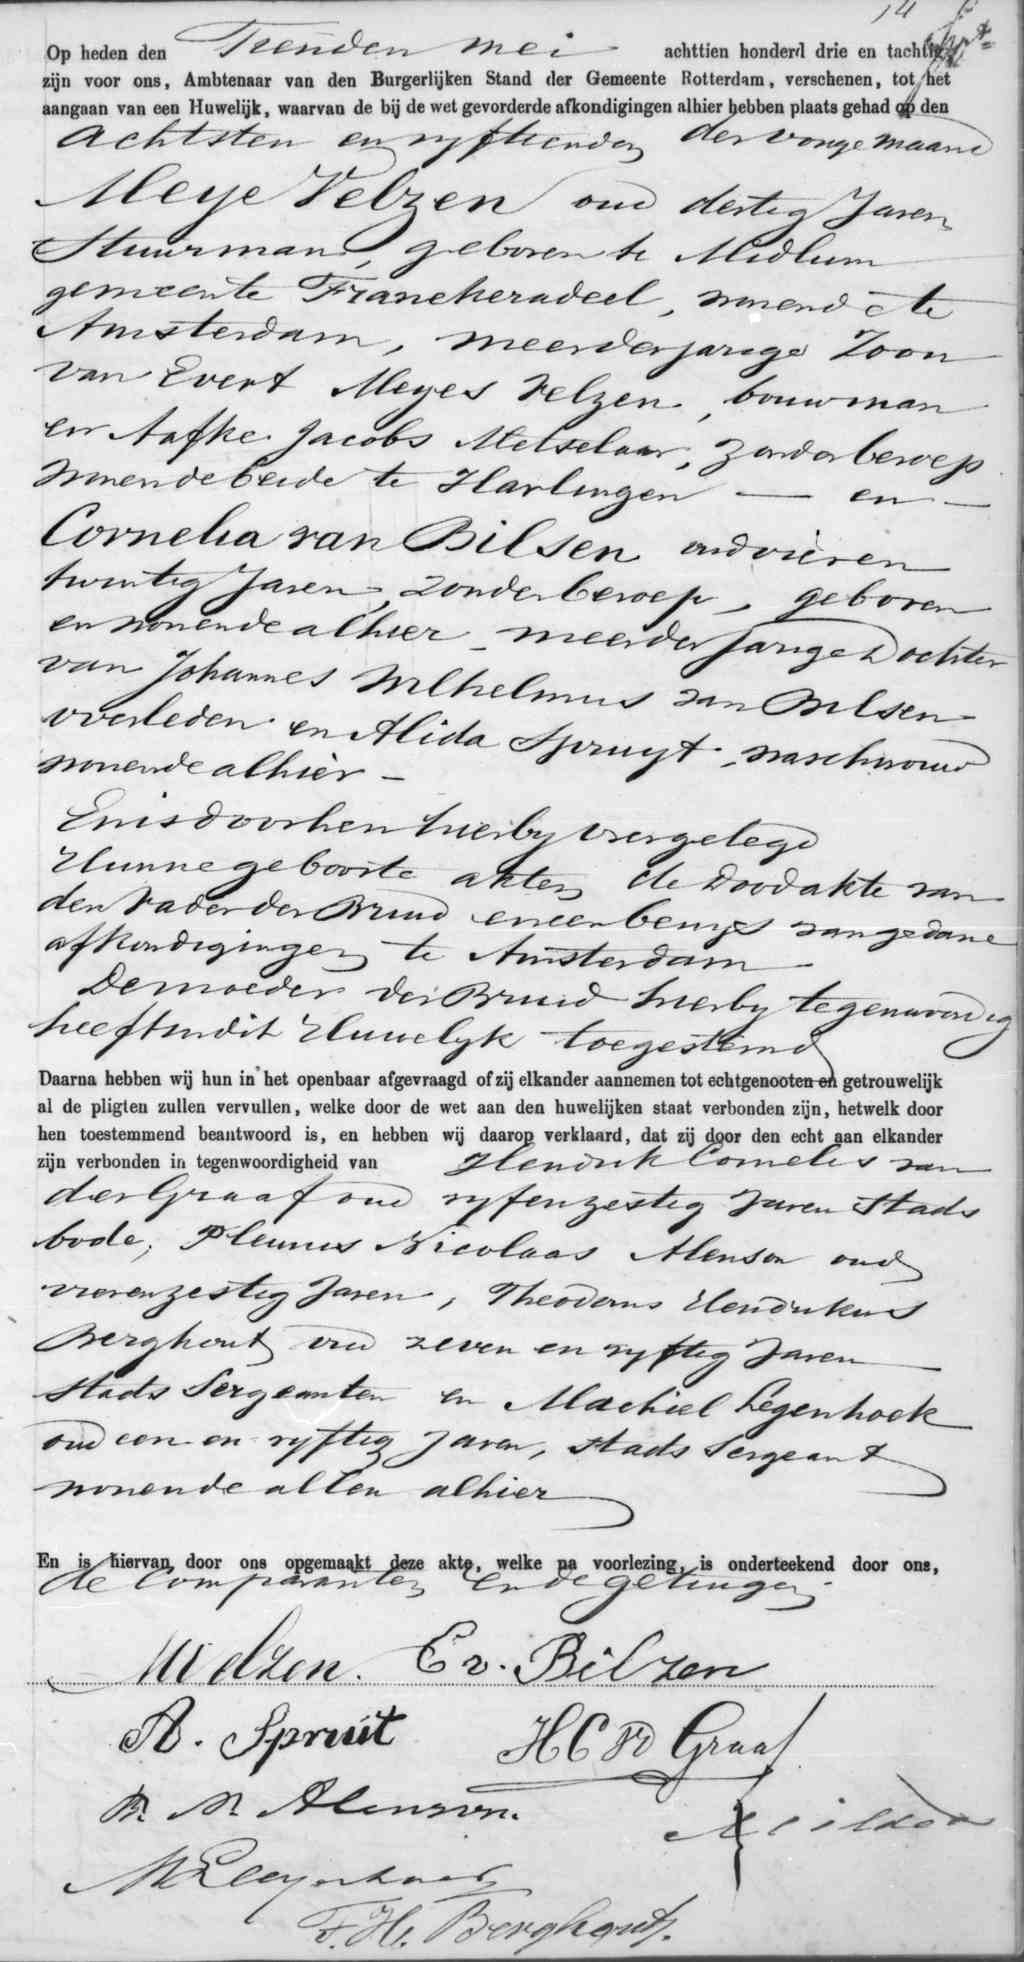 14
Op heden den Tienden Mei achttien honderd drie en tachtig
zijn voor ons, Ambtenaar van den Burgerlijken Stand der Gemeente Rotterdam, verschenen, tot het
aangaan van een Huwelijk, waarvan de bij de wet gevorderde afkondigingen alhier hebben plaats gehad op den
achtsten en vyftienden der vorige maand
Meye Velzen oud dertig Jaren
Stuurman, geboren te Midlum
gemeente Franekeradeel, wonende te
Amsterdam, meerderjarige Zoon
van Evert Meyes Velzen, bouwman
en Aafke Jacobs Metselaar, zonder beroep
wonende beide te Harlingen — en —
Cornelia van Bilsen oud vier en
twintig Jaren, zonder beroep, geboren
en wonende alhier, meerderjarige Dochter
van Johannes Wilhelmus van Bilsen
overleden en Alida Spruyt, waschvrouw
wonende alhier —
En is door hen hierby overgelegd
Hunne geboorte akten, de Doodakte van
den Vader der Bruid en een bewys van gedane
afkondigingen te Amsterdam
De moeder der Bruid hierby tegenwoordig
heeft in dit Huwelyk toegestemd
Daarna hebben wij hun in het openbaar afgevraagd of zij elkander aannemen tot echtgenooten en getrouwelijk
al de pligten zullen vervullen, welke door de wet aan den huwelijken staat verbonden zijn, hetwelk door
hen toestemmend beantwoord is, en hebben wij daarop verklaard, dat zij door den echt aan elkander
zijn verbonden in tegenwoordigheid van Hendrik Cornelis van
der Graaf oud vyfenzestig Jaren Stads
bode, Pleunus Nicolaas Alenson oud
vierenzestig Jaren, Theodorus Hendrikus
Berghout oud zeven en vyftig Jaren
Stads Sergeanten en Machiel Legenhoek
oud een en vyftig Jaren, Stads Sergeant
wonende allen alhier
En is hiervan door ons opgemaakt deze akte, welke na voorlezing, is onderteekend door ons,
de Comparanten en de getuigen
M Velzen. C v. Bilzen
A. Spruit H C vd Graaf
P. N Alenson.
T. H. Berghout.